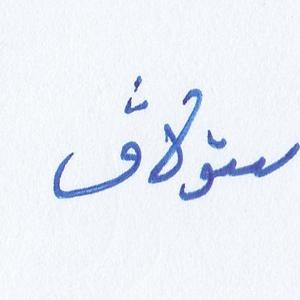 ستولاڤ